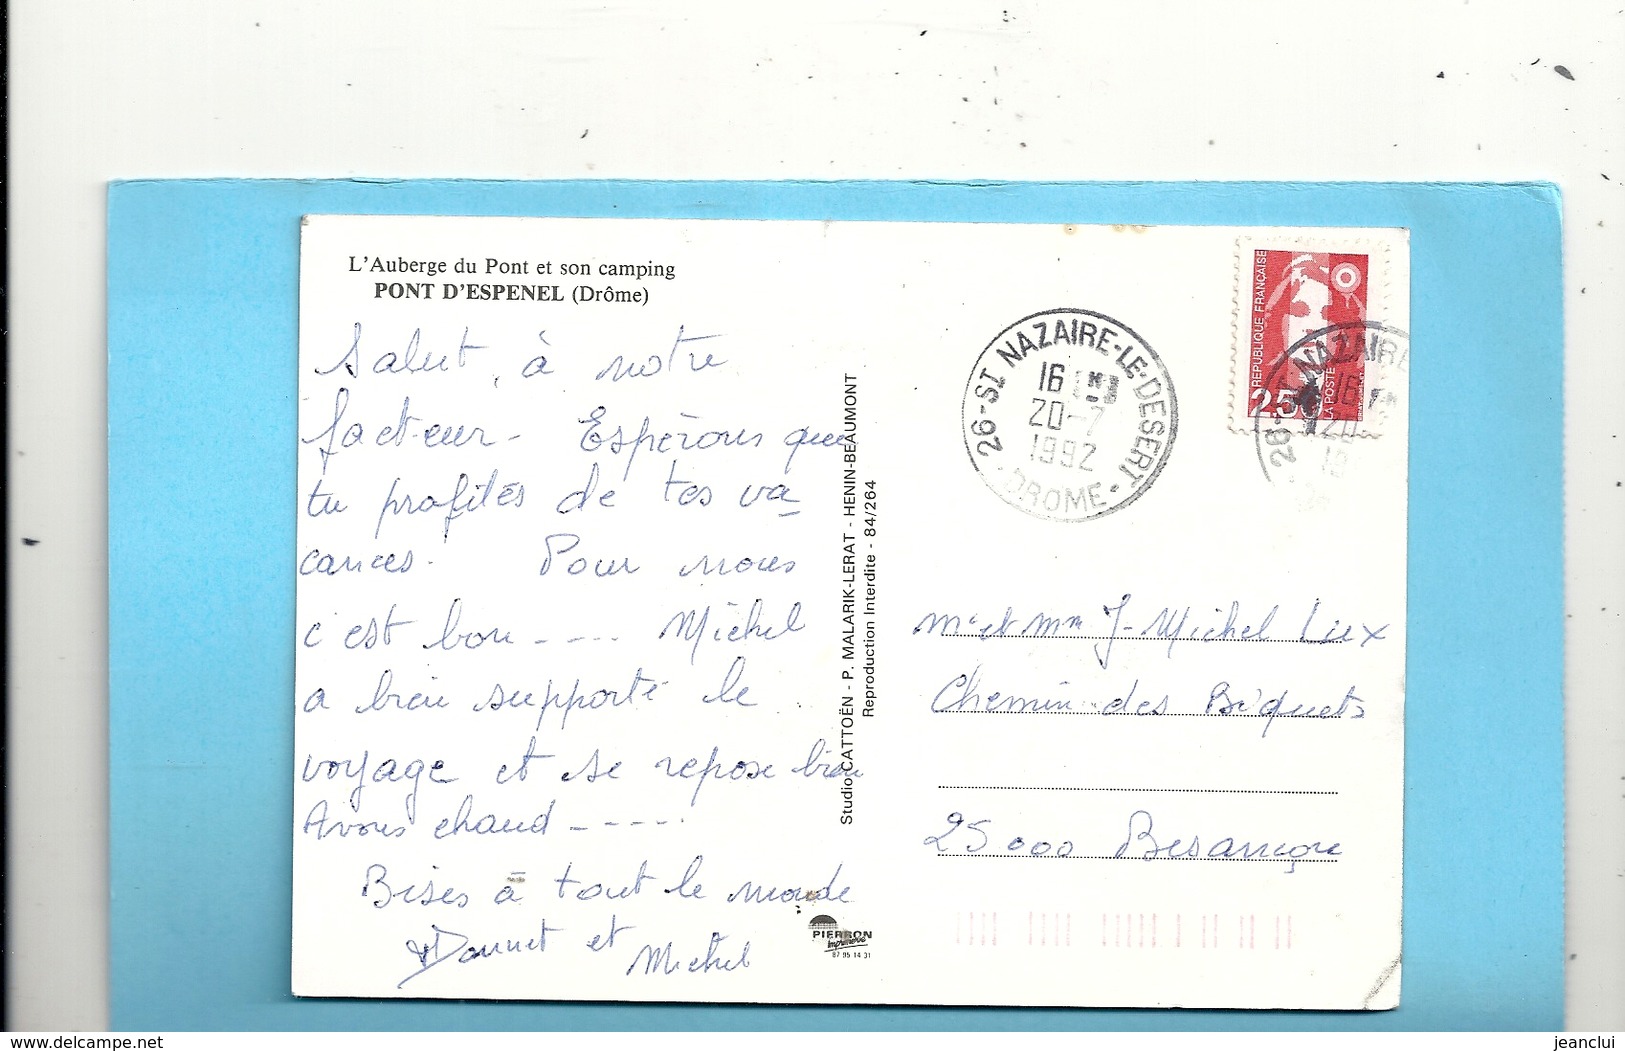 L'Auberge du Pont et son camping
PONT D'ESPENEL (Drôme)
Salut à notre
facteur - Espérons que
tu profites de tes va
cances. Pour nous
c'est bon - - - - Michel
a bien supporté le
voyage et se repose bien
Avons chaud - - - - -
Bises à tout le monde
et Michel
Studio CATTOËN - P. MALARIK-LERAT - HENIN-BEAUMONT
Reproduction Interdite - 84/264
PIERRON
Imprimerie
87 95 14 31
26-ST NAZAIRE-LE-DESERT
16 H
20-7
1992
-DROME-
REPUBLIQUE FRANÇAISE
LA POSTE
2,50
26-ST NAZAIRE
16 H
20
19
Mr et Mme J-Michel Liex
Chemin des Biquets
25000 Besançon
delcampe.net
jeanclui